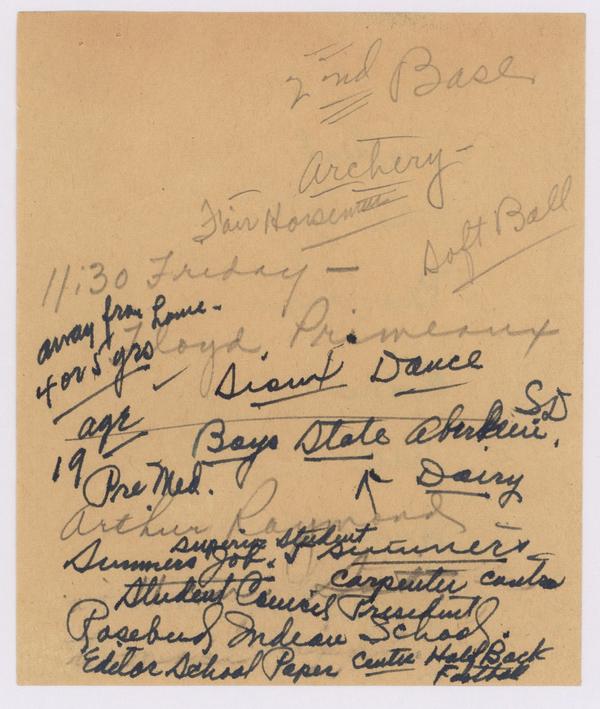 2nd Base
Archery -
Fair Horseman
Soft Ball
11:30 Friday -
away from home.
4 or 5 yrs
Lloyd Primeaux
Sioux Dance
age
19
Boys State Aberdeen, SD
Pre Med.
Dairy
Arthur Raymond
superior student
Summers Job. Summers
carpenter
Student Council President
Rosebud Indian School.
Editor School Paper Center Half Back
Football